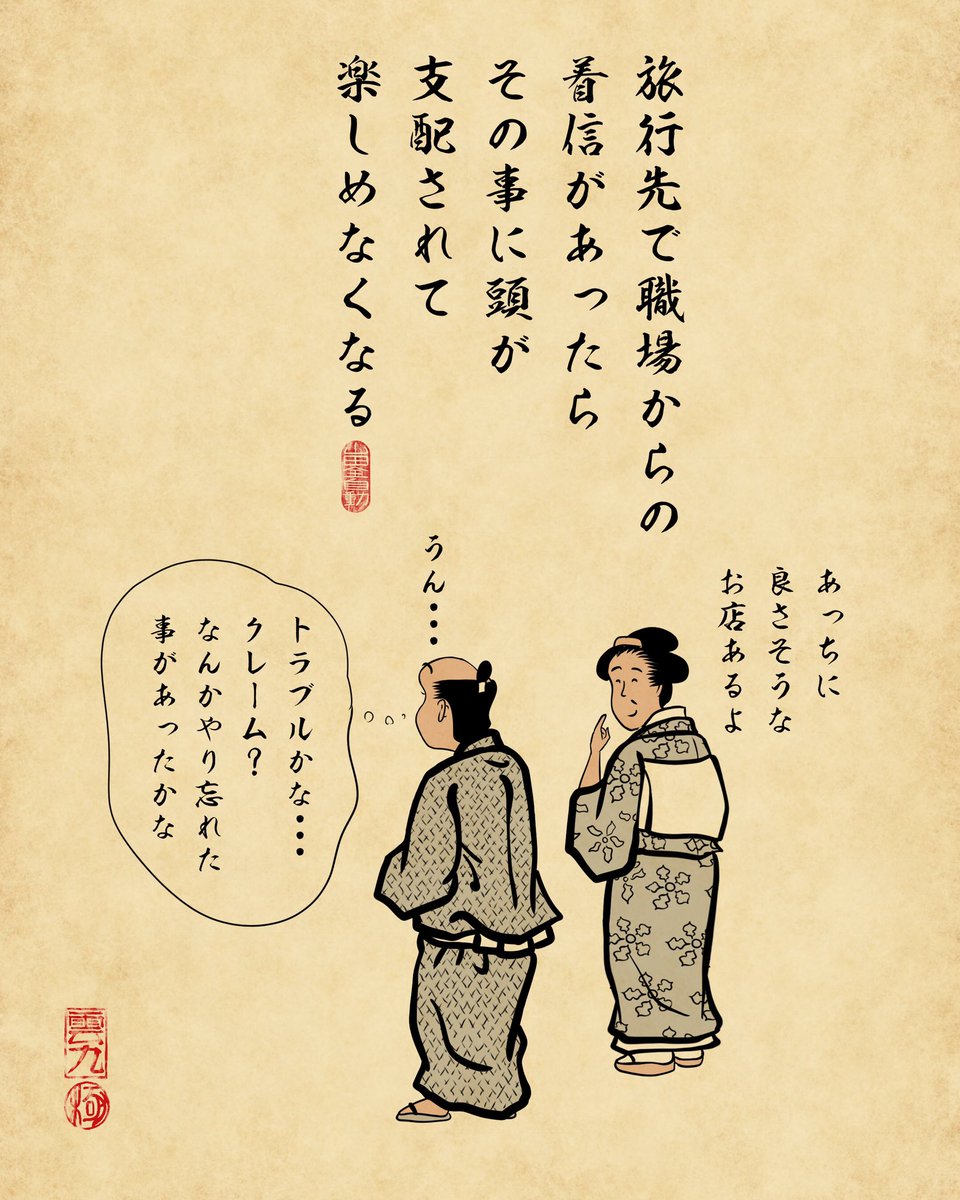 旅行先で職場からの
着信があったら
その事に頭が
支配されて
楽しめなくなる
あっちに
良さそうな
お店あるよ
うん・・・
トラブルかな・・・
クレーム？
なんかやり忘れた
事があったかな